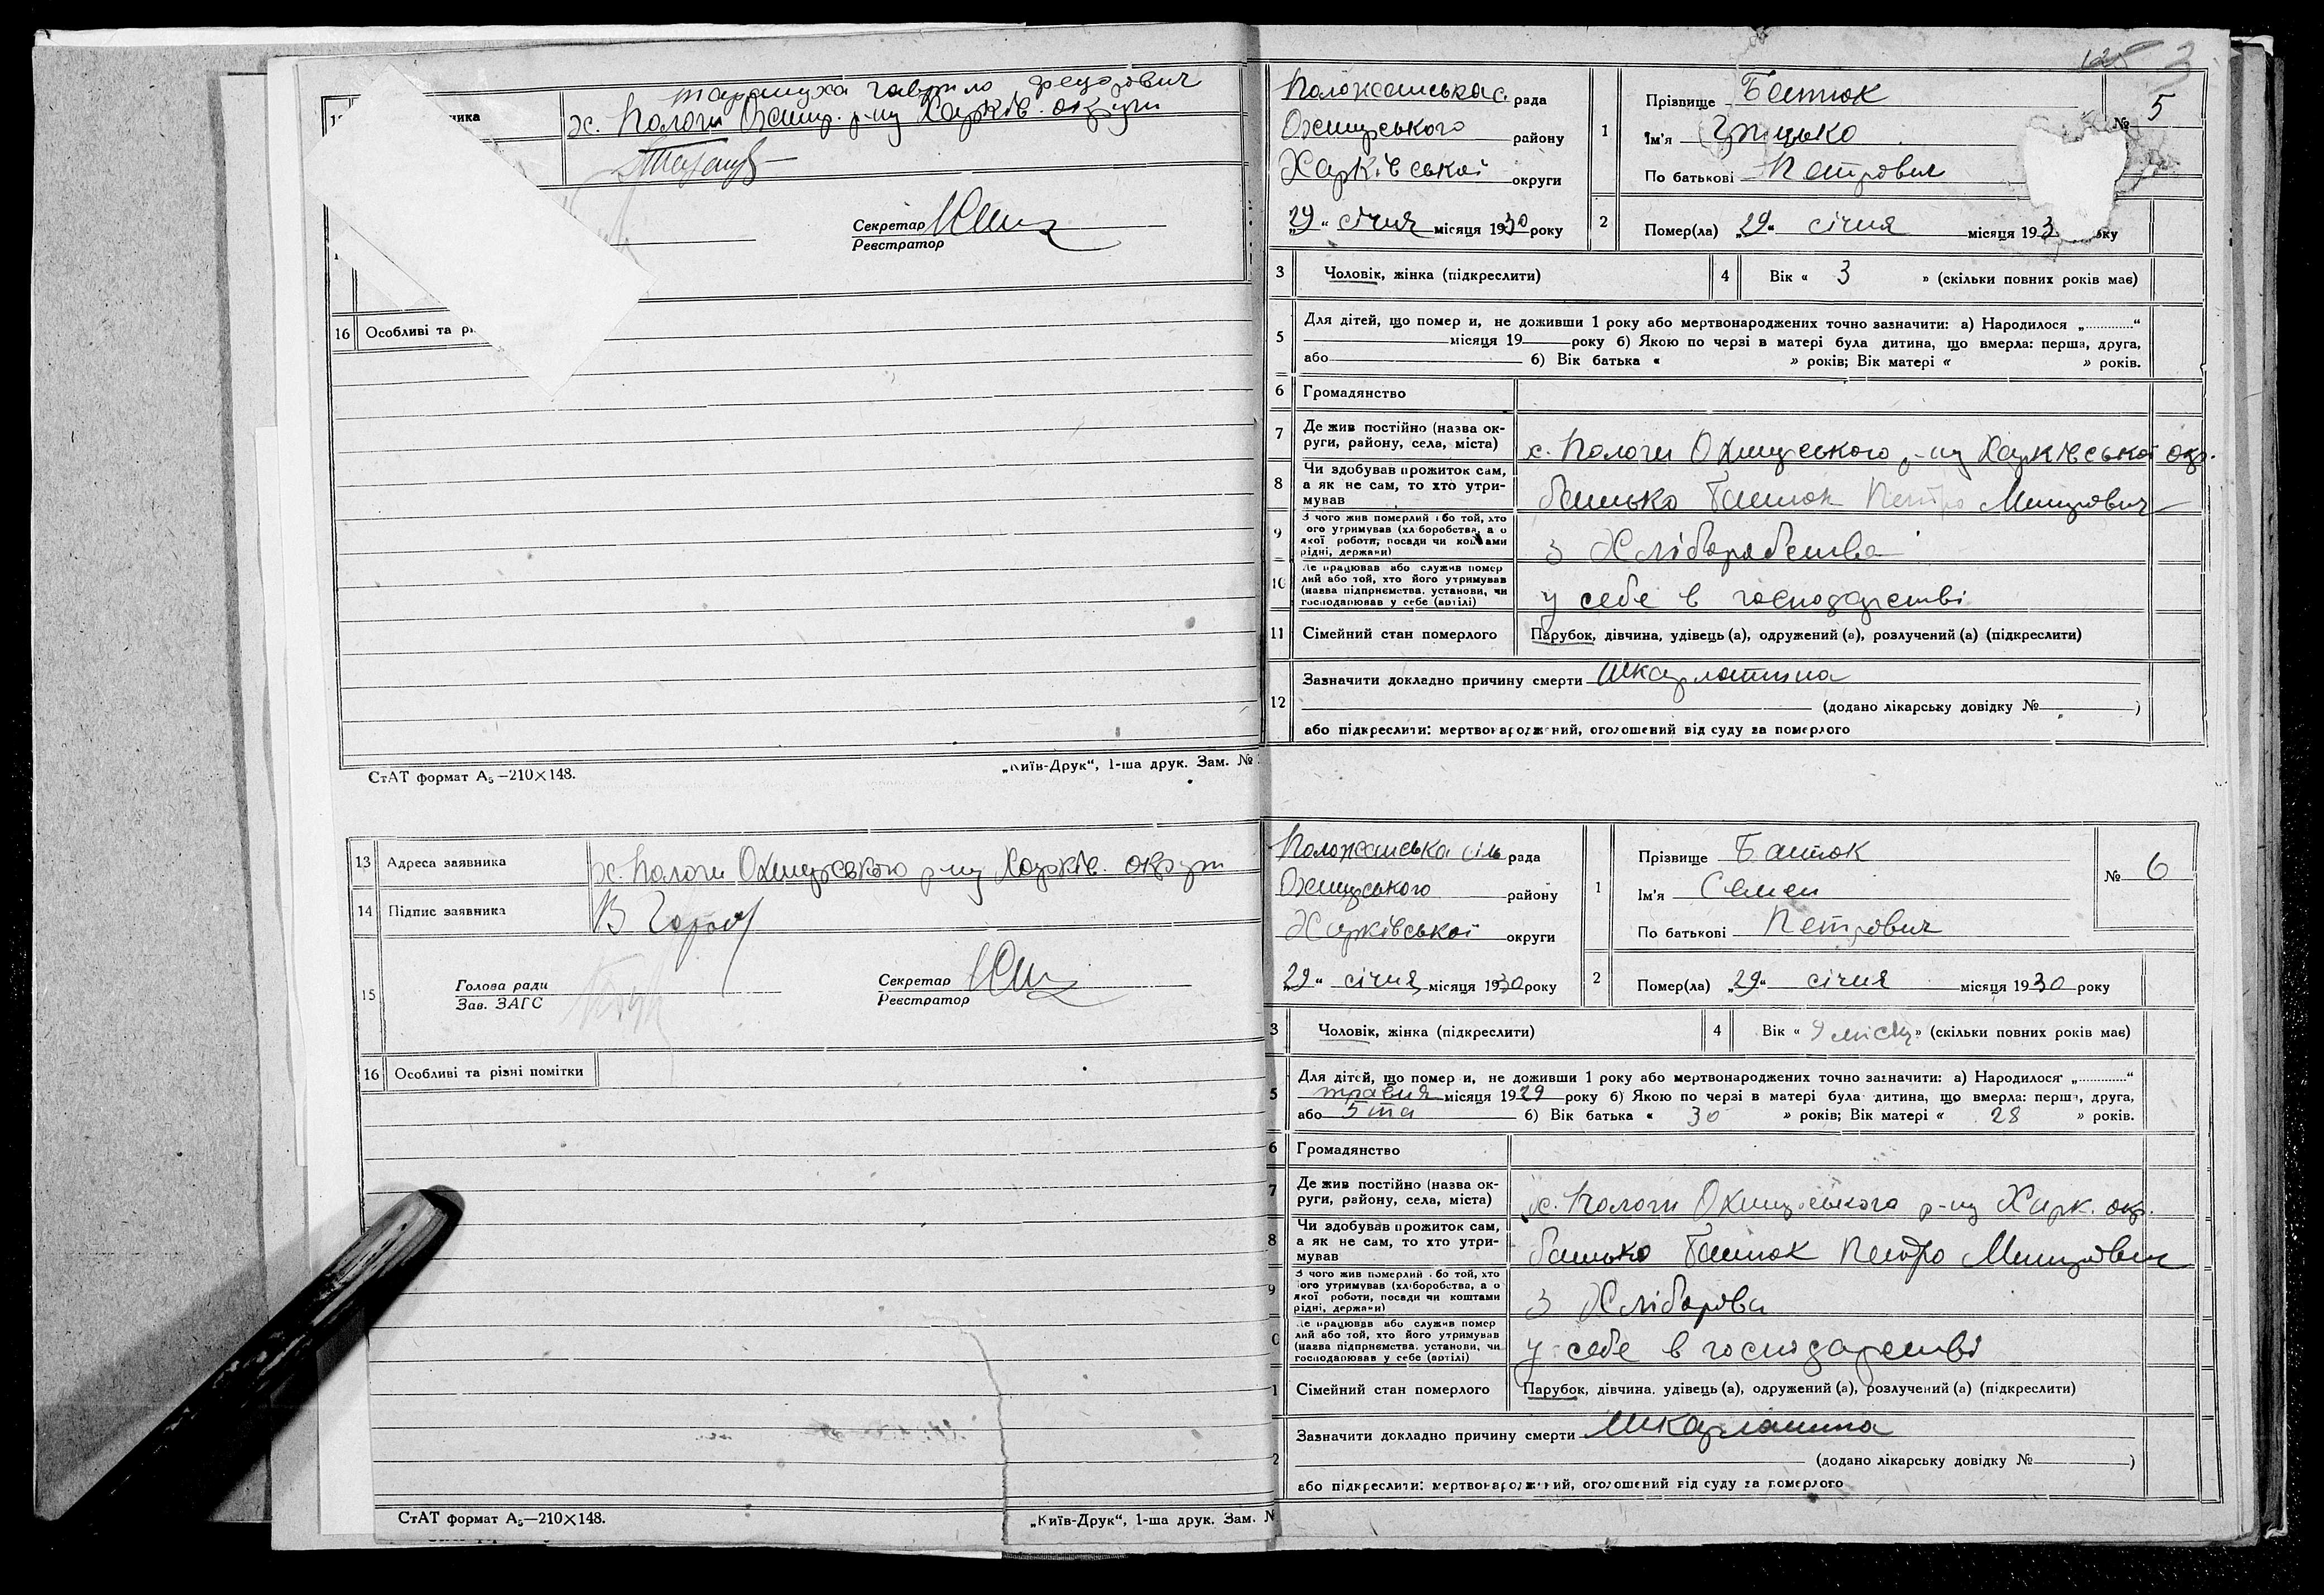 Тарануха Гаврило Федорович
ника х. Пологи Охтир. р-ну Харків. округи
Секретар
Реєстратор
16 Особливі та рі
СтАТ формат А₅—210×148.
„Київ-Друк“, 1-ша друк. Зам. №
13 Адреса заявника х. Пологи Охтирського р-ну Харків. округи
14 Підпис заявника
15 Голова ради
Зав. ЗАГС
Секретар
Реєстратор
16 Особливі та різні помітки
СтАТ формат А₅—210×148.
„Київ-Друк“, 1-ша друк. Зам. №
3
Положанська с. рада
Охтирського району
Харківської округи
„29“ січня місяця 1930 року
1 Прізвище Батюк
№ 5
Ім'я Грицько
По батькові Петрович
2 Помер(ла) „29“ січня місяця 193
3 Чоловік, жінка (підкреслити)
4 Вік « 3 » (скільки повних років має)
5 Для дітей, що помер и, не доживши 1 року або мертвонароджених точно зазначити: а) Народилося „.............“
місяця 19 року б) Якою по черзі в матері була дитина, що вмерла: перша, друга,
або б) Вік батька « » років; Вік матері « » років.
6 Громадянство
7 Де жив постійно (назва округи, району, села, міста) х. Пологи Охтирського р-ну Харківської окр.
8 Чи здобував прожиток сам, а як не сам, то хто утримував батько Батюк Петро Митрович
9 З чого жив померлий або той, хто його утримував (хліборобства, а о якої роботи, посади чи коштами рідні, держави) з Хліборобства
10 Де працював або служив померлий або той, хто його утримував (назва підприємства, установи, чи господарював у себе (артілі) у себе в господарстві
11 Сімейний стан померлого Парубок, дівчина, удівець (а), одружений (а), розлучений (а) (підкреслити)
12 Зазначити докладно причину смерти Шкарлатина
(додано лікарську довідку № )
або підкреслити: мертвонароджений, оголошений від суду за померлого
Положанська сіль рада
Охтирського району
Харківської округи
„29“ січня місяця 1930 року
1 Прізвище Батюк
№ 6
Ім'я Семен
По батькові Петрович
2 Помер(ла) „29“ січня місяця 1930 року
3 Чоловік, жінка (підкреслити)
4 Вік « 9 місяц » (скільки повних років має)
5 Для дітей, що помер и, не доживши 1 року або мертвонароджених точно зазначити: а) Народилося „.............“
травня місяця 1929 року б) Якою по черзі в матері була дитина, що вмерла: перша, друга,
або 5 та б) Вік батька « 30 » років; Вік матері « 28 » років.
6 Громадянство
7 Де жив постійно (назва округи, району, села, міста) х. Пологи Охтирського р-ну Харк. окр.
8 Чи здобував прожиток сам, а як не сам, то хто утримував батько Батюк Петро Митрович
9 З чого жив померлий або той, хто його утримував (хліборобства, а о якої роботи, посади чи коштами рідні, держави) з Хлібороба
Де працював або служив померлий або той, хто його утримував (назва підприємства, установи, чи господарював у себе (артілі) у себе в господарстві
Сімейний стан померлого Парубок, дівчина, удівець (а), одружений (а), розлучений (а) (підкреслити)
Зазначити докладно причину смерти Шкарлатина
(додано лікарську довідку № )
або підкреслити: мертвонароджений, оголошений від суду за померлого